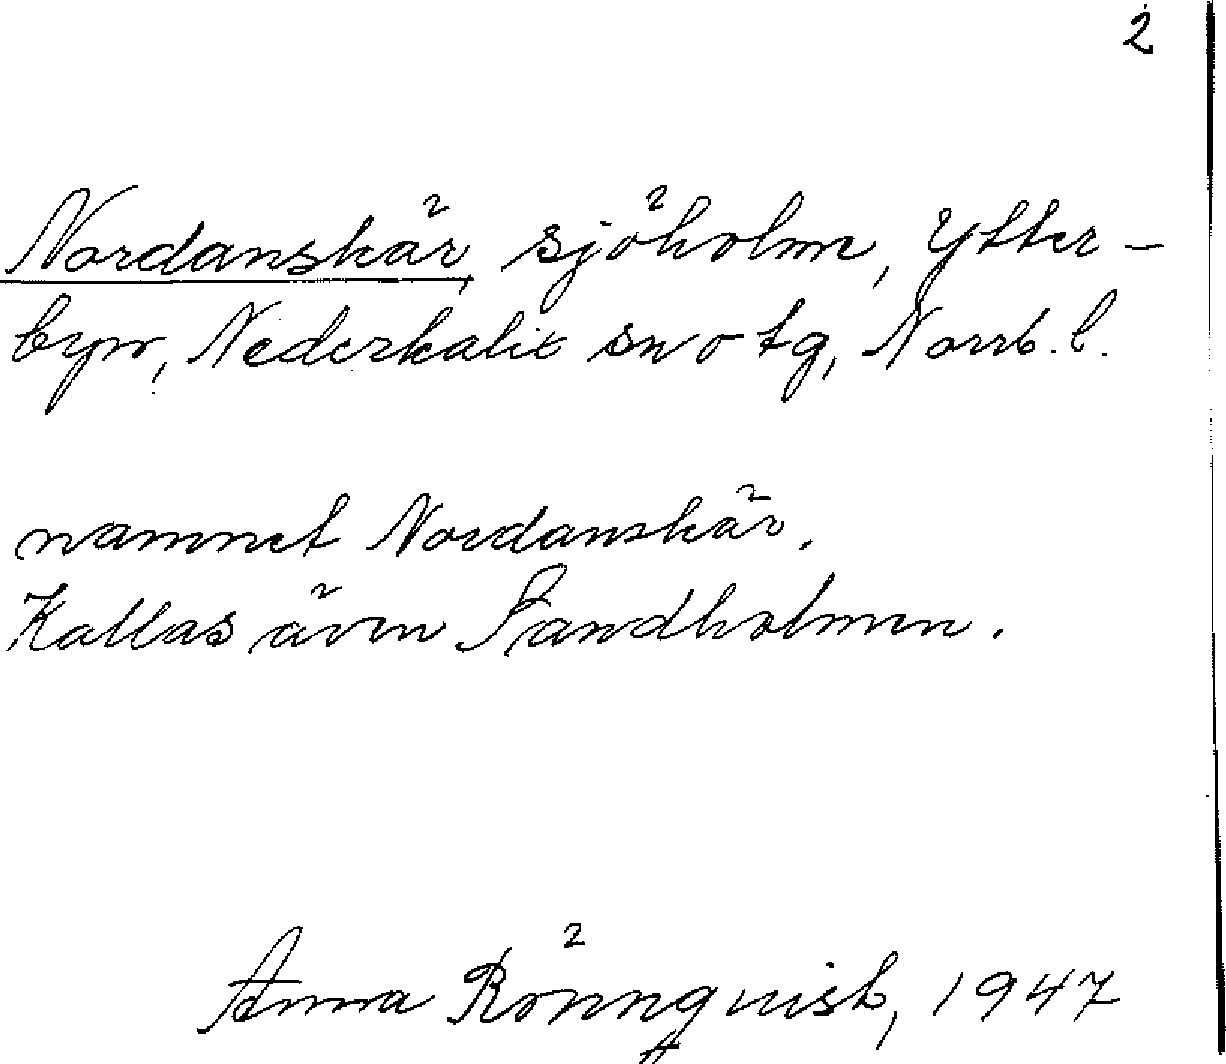 2
Nordanskär, sjöholme, Ytter-
byn, Nederkalix sn o tg, Norrb. l.
namnet Nordanskär.
Kallas även Sandholmen.
Anna Rönnqvist, 1947